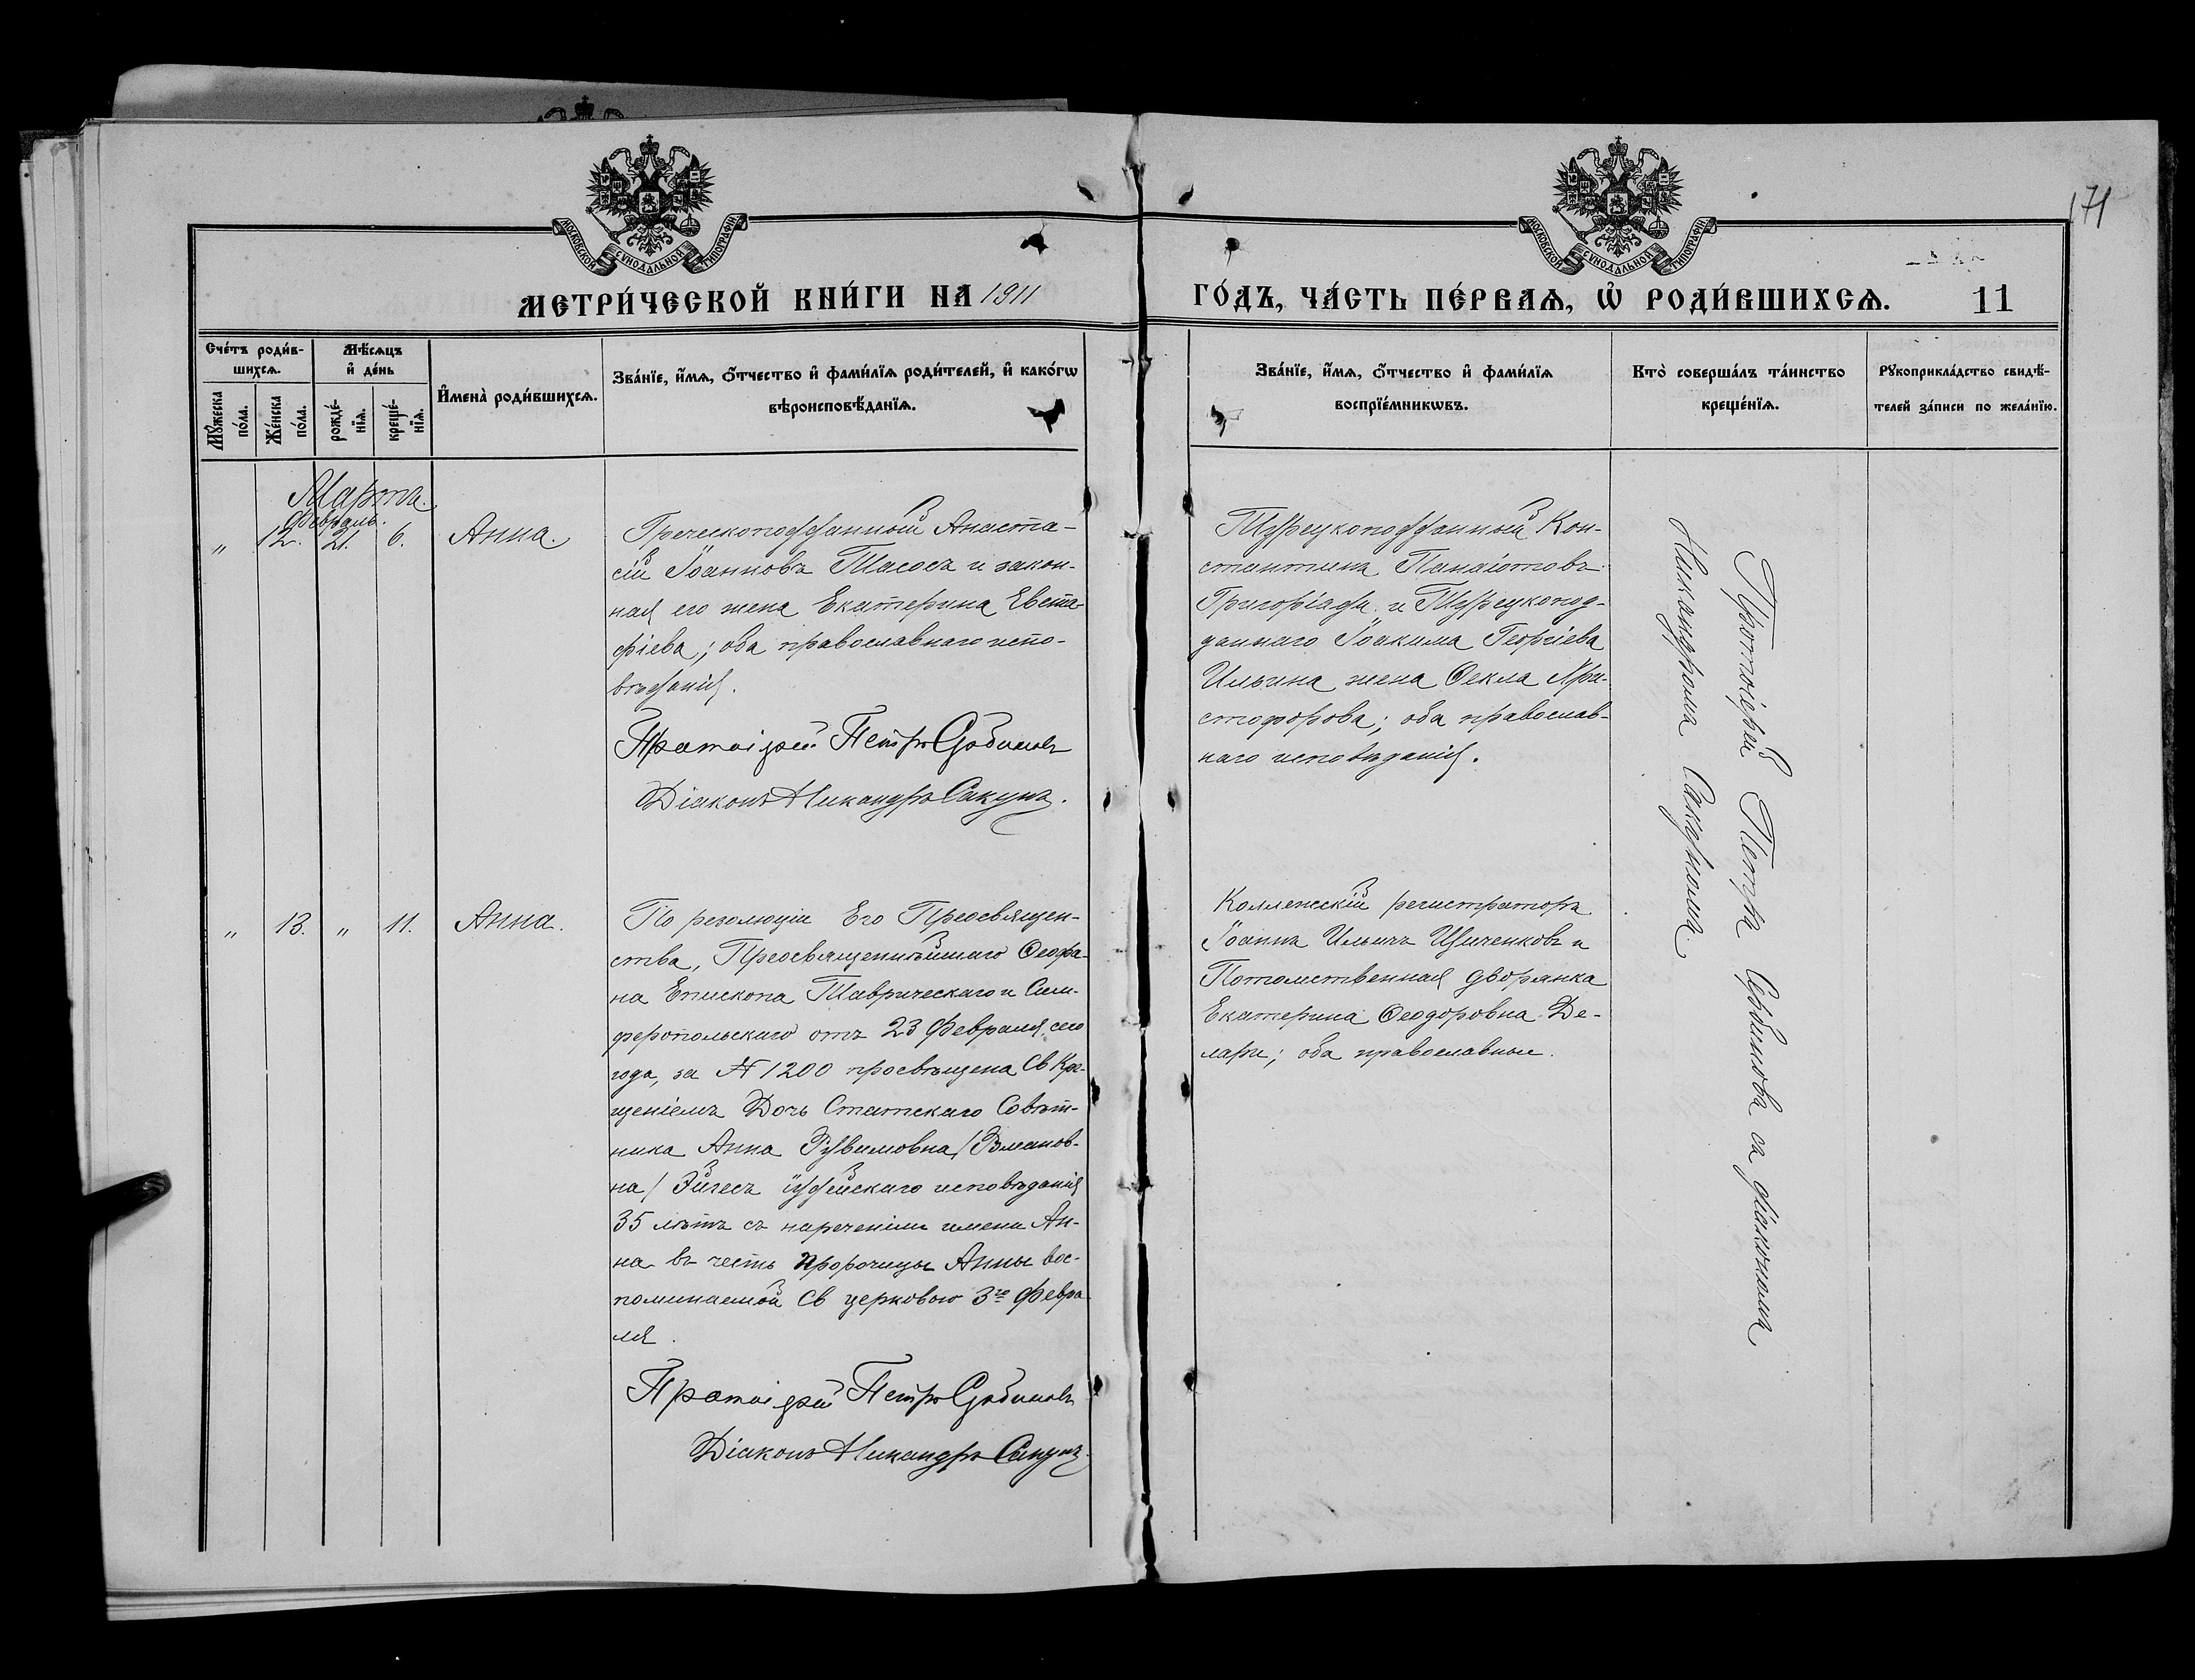 171
МОСКОВСКОЙ СУНОДАЛЬНОЙ ТИПОГРАФІИ
МОСКОВСКОЙ СУНОДАЛЬНОЙ ТИПОГРАФІИ
МЕТРИ́ЧЕСКОЙ КНИ́ГИ НА 1911
ГО́ДЪ, ЧА́СТЬ ПЕ́РВАѦ, Ѡ҆ РОДИ́ВШИХСѦ. 11
Сче́тъ роди́в-
шихсѧ.
Мѣ́сѧцъ
и҆ де́нь
Мꙋ́жеска
по́ла.
Же́нска
по́ла.
рожде́-
нїѧ.
креще́-
нїѧ.
И҆мена̀ роди́вшихсѧ.
Зва́нїе, и҆́мѧ, ѻ҆́тчество и҆ фами́лїѧ роди́телей, и҆ како́гѡ
вѣроисповѣ́данїѧ.
Зва́нїе, и҆́мѧ, ѻ҆́тчество и҆ фами́лїѧ
воспрїе́мникѡвъ.
Кто̀ соверша́лъ та́инство
креще́нїѧ.
Рꙋкоприкла́дство свидѣ́-
телей за́писи по жела́нїю.
Марта.
Февраль.
„ 12. 21. 6. Анна.
Греческоподданный Анаста-
сій Іоанновъ Тасосъ и закон-
ная его жена Екатерина Евста-
фіева; оба православнаго испо-
вѣданія.
Протоіерей Петръ Сербиновъ
Діаконъ Никандръ Сакунъ.
Турецкоподданный Кон-
стантинъ Панаіотовъ
Григоріади и Турецкопод-
даннаго Іоакима Георгіева
Ильина жена Ѳекла Хри-
стофорова; оба православ-
наго исповѣданія.
Протоіерей Петръ Сербиновъ съ діакономъ
Никандромъ Сакуномъ.
„ 13. „ 11. Анна.
По резолюціи Его Преосвящен-
ства, Преосвященнѣйшаго Ѳеофа-
на Епископа Таврическаго и Сим-
феропольскаго отъ 23 Февраля сего
года, за № 1200 просвѣщена Св Кре-
щеніемъ Дочь Статскаго Совѣт-
ника Анна Рувимовна /Романов-
на/ Эйгесъ іудейскаго исповѣданія
35 лѣтъ съ нареченіемъ имени Ан-
на въ честь Пророчицы Анны вос-
поминаемой Св церковью 3го Февра-
ля.
Протоіерей Петръ Сербиновъ
Діаконъ Никандръ Сакунъ.
Коллежскій регистраторъ
Іоаннъ Ильичъ и
Потомственная дворянка
Екатерина Ѳеодоровна Де-
лари; оба православные.